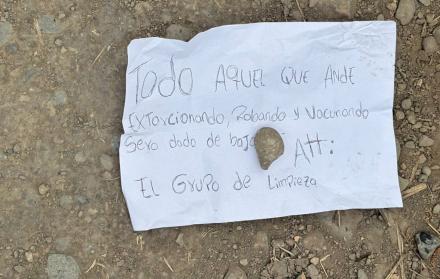 Todo AQUEL QUE ANDE
Extorcionando, Robando y Vacunando
Sera dado de baja Att:
EL GRUPO de Limpieza